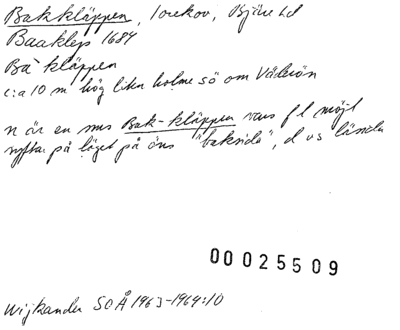 Bakkläppen, Torekov, Bjäre hd
Baaklep 1684
Ba`kläppen
c:a 10 m hög liten holme sö om Väderön
n är en ms Bak-kläppen vars f l möjl
syftar på läget på öns "baksida", d v s
00025509
Wijkander SOÅ 1963-1964:10